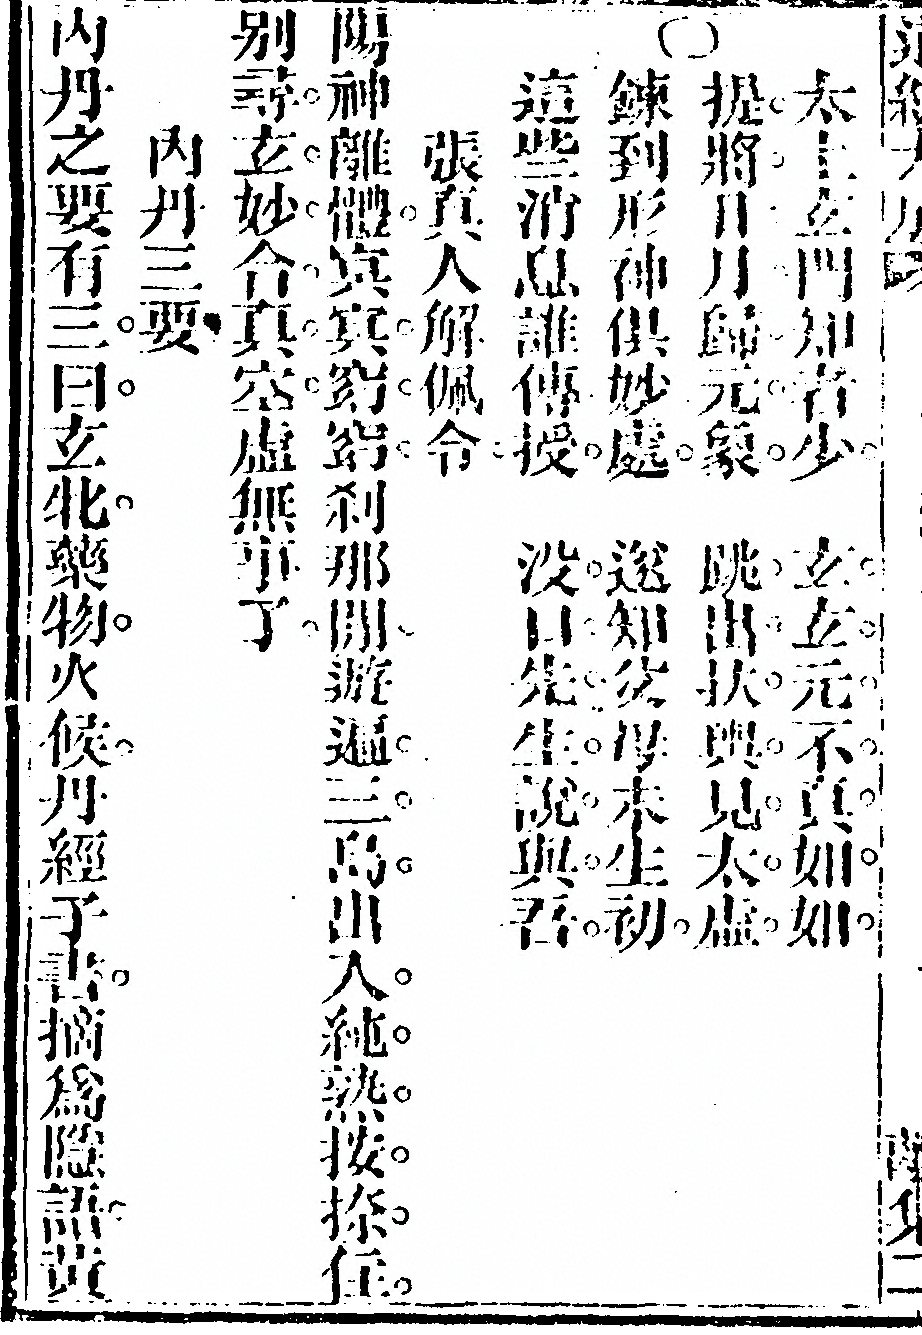 太上玄門知者少　玄玄元不真如如
提將日月歸元象　跳出扶輿見太虛
鍊到形神俱妙處　迴知父母未生初
這些消息誰傳授　沒口先生說與吾
張真人解佩令
陽神離體冥冥窈窈剎那間遊遍三島出入純熟按捺住
別尋玄妙合真空虛無事了
內丹三要
內丹之要有三曰玄牝藥物火候丹經子書摘為隱語黃